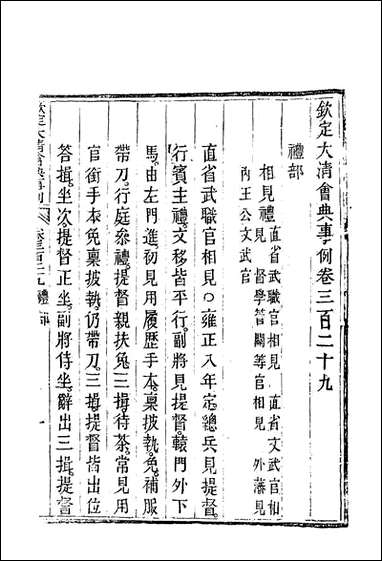 欽定大清會典事例卷三百二十九
禮部
相見禮 直省武職官相見 直省文武官相
見 督學管關等官相見 外藩見
內王公文武官
直省武職官相見○雍正八年定總兵見提督。
行賓主禮。文移皆平行。副將見提督。轅門外下
馬。由左門進。初見用履歷手本。稟披執。免。補服
帶刀。行庭參禮。提督親扶免。三揖。待茶。常見用
官銜手本。免稟披執。仍帶刀。三揖。提督皆出位
答揖。坐次提督正坐。副將侍坐。辭出三揖。提督
欽定大清會典事例 卷三百二十九 禮部 一